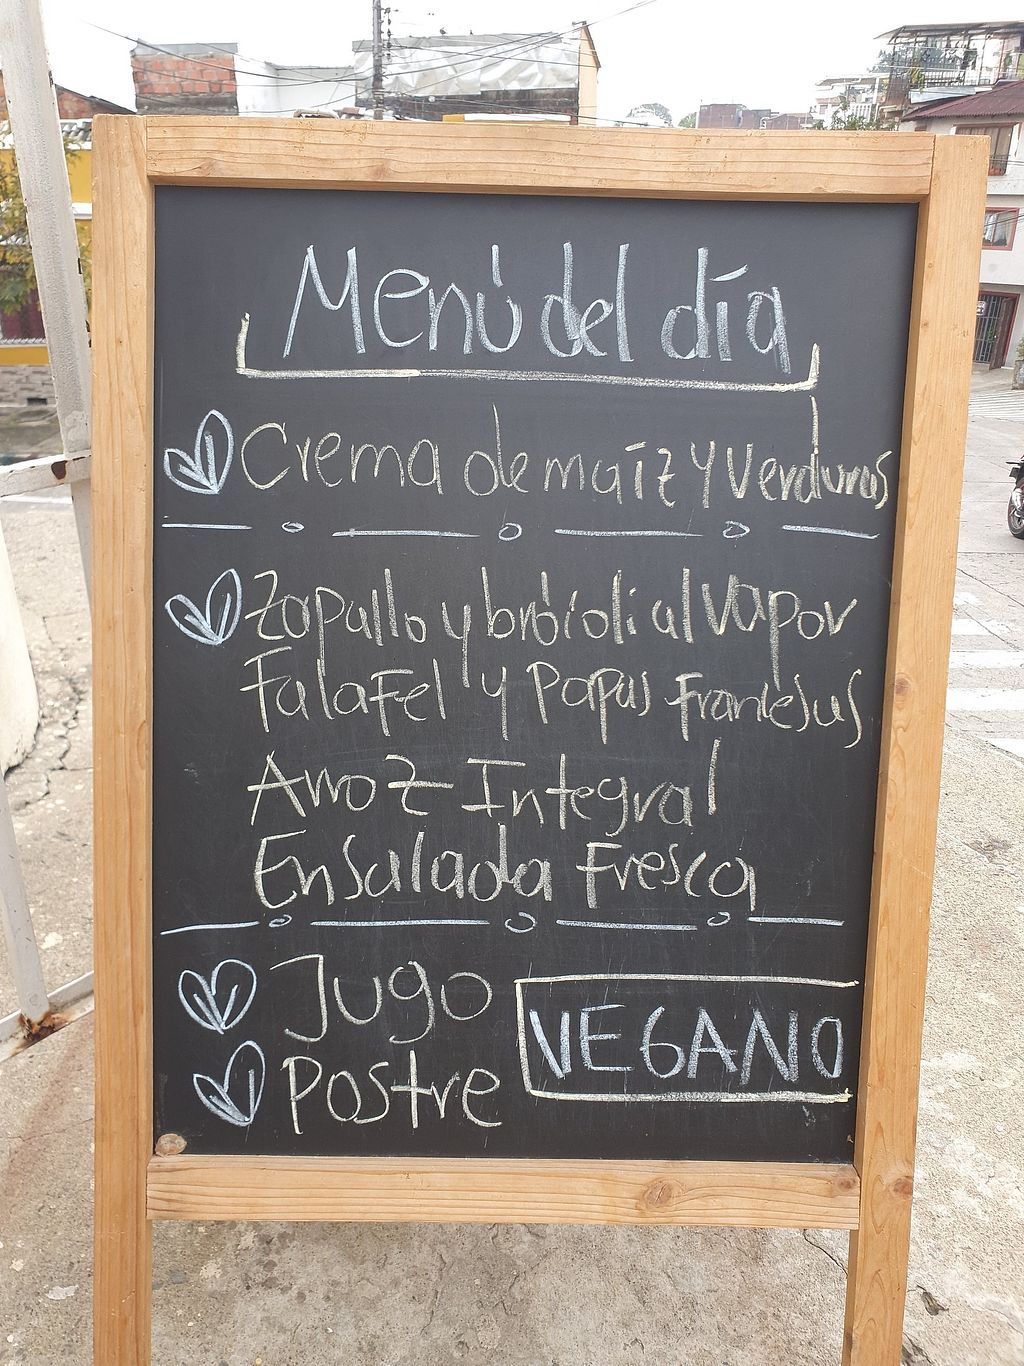 Menú del día
Crema de maíz y verduras
Zapallo y brócoli al vapor
Falafel y Papas Francesas
Arroz Integral
Ensalada Fresca
Jugo
Postre
VEGANO